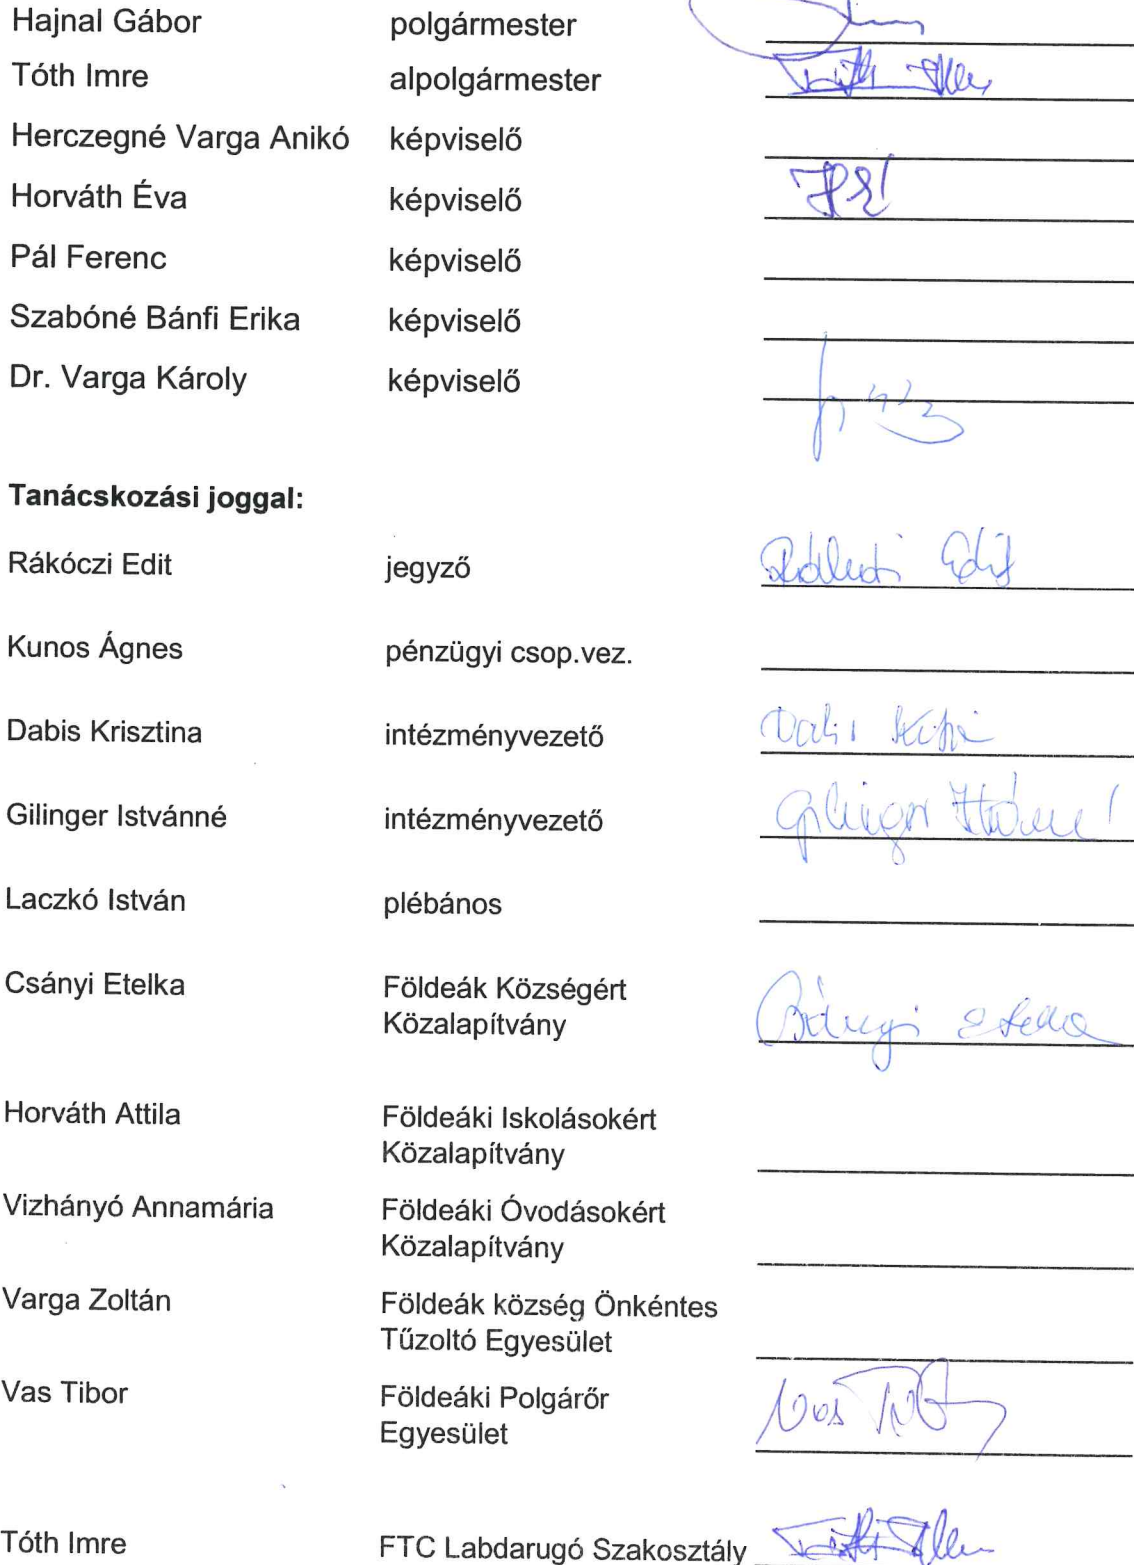 Hajnal Gábor polgármester
Tóth Imre alpolgármester Tóth Imre
Herczegné Varga Anikó képviselő
Horváth Éva képviselő
Pál Ferenc képviselő
Szabóné Bánfi Erika képviselő
Dr. Varga Károly képviselő
Tanácskozási joggal:
Rákóczi Edit jegyző Rákóczi Edit
Kunos Ágnes pénzügyi csop.vez.
Dabis Krisztina intézményvezető Dabis
Gilinger Istvánné intézményvezető Gilinger Istvánné
Laczkó István plébános
Csányi Etelka Földeák Községért
Közalapítvány Csányi Etelka
Horváth Attila Földeáki Iskolásokért
Közalapítvány
Vizhányó Annamária Földeáki Óvodásokért
Közalapítvány
Varga Zoltán Földeák község Önkéntes
Tűzoltó Egyesület
Vas Tibor Földeáki Polgárőr
Egyesület Vas
Tóth Imre FTC Labdarugó Szakosztály Tóth Imre